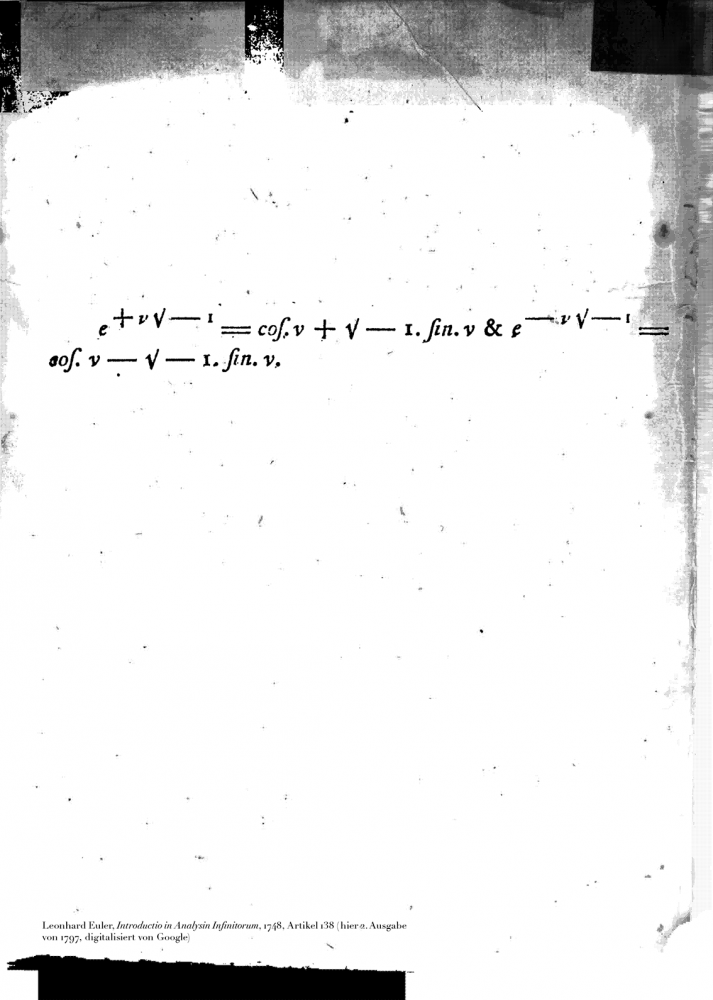 e^{+v√—1} = coſ. v + √ — 1. ſin. v & e^{—v√—1} =
coſ. v — √ — 1. ſin. v.
Leonhard Euler, Introductio in Analysin Infinitorum, 1748, Artikel 138 (hier 2. Ausgabe
von 1797, digitalisiert von Google)